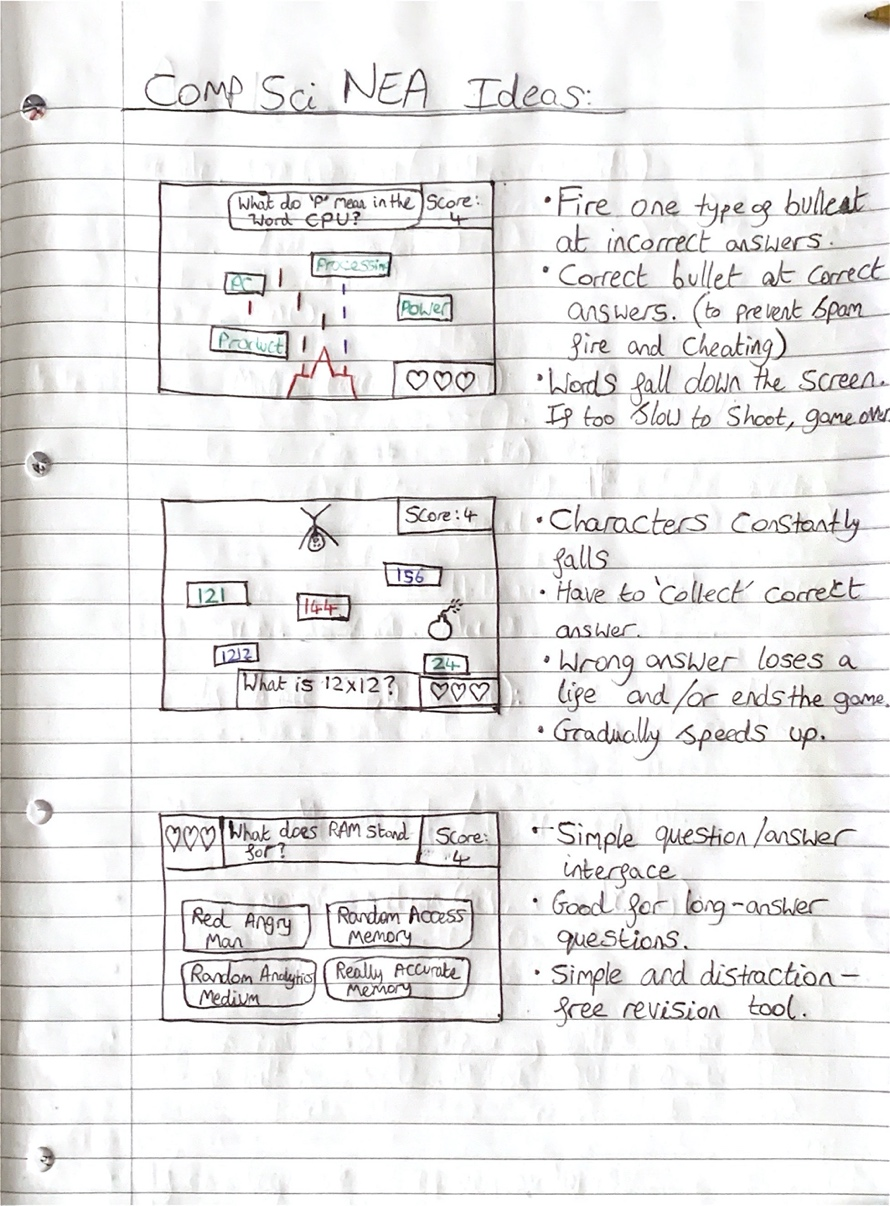 Comp Sci NEA Ideas:
What do 'P' mean in the
Word CPU?
Score:
4
Processin
PC
Power
Product
• Fire one type of bullet
at incorrect answers.
• Correct bullet at correct
answers. (to prevent spam
fire and cheating)
• Words fall down the screen.
If too slow to shoot, game over.
Score: 4
156
121
144
1212
24
What is 12x12?
• Characters constantly
falls
• Have to 'collect' correct
answer.
• Wrong answer loses a
life and/or ends the game.
• Gradually speeds up.
What does RAM stand
for?
Score:
4
Red Angry
Man
Random Access
Memory
Random Analytics
Medium
Really Accurate
Memory
• Simple question/answer
interface
• Good for long-answer
questions.
• Simple and distraction-
free revision tool.